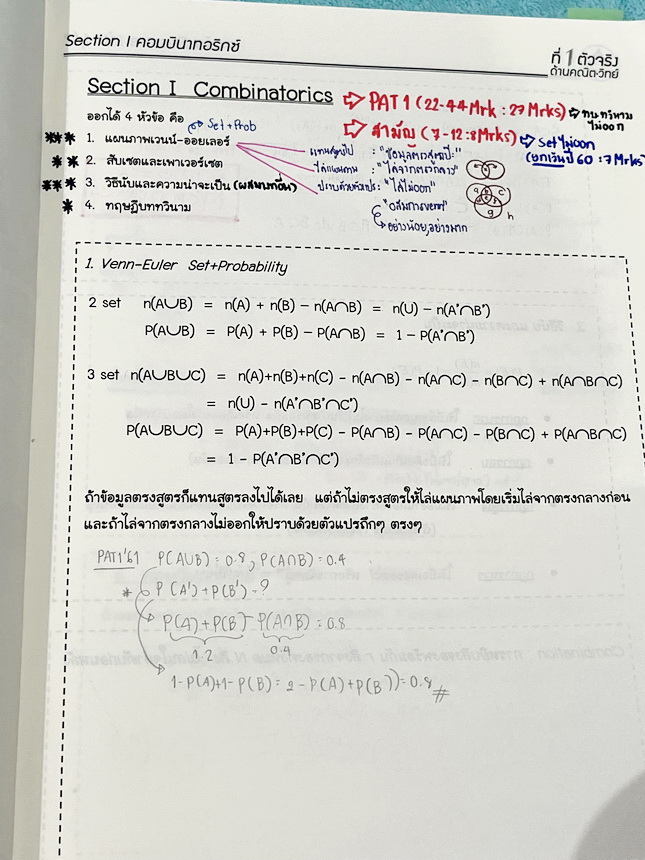 Section I คอมบินาทอริกซ์
ที่ 1 ตัวจริง
ด้านคณิต-วิทย์
Section I Combinatorics ⇨ PAT 1 (22-44 Mrk : 27 Mrks) ⇨ ทบ.ทวินาม ไม่ออก
⇨ สามัญ (7-12 : 8 Mrks) ⇨ Set ไม่ออก
(ยกเว้นปี 60 : 7 Mrks)
ออกได้ 4 หัวข้อ คือ
Set+Prob
*** 1. แผนภาพเวนน์-ออยเลอร์
** 2. สับเซตและเพาเวอร์เซต
*** 3. วิธีนับและความน่าจะเป็น (ผสมบทอื่น)
* 4. ทฤษฎีบททวินาม
: "ข้อมูลตรงสูตรเป๊ะ"
ไล่แผนภาพ : "ไล่จากตรงกลาง"
: "ไล่ไม่ออก"
อย่างน้อย, อย่างมาก
a b c
g h
1. Venn-Euler Set+Probability
2 set n(A∪B) = n(A) + n(B) - n(A∩B) = n(U) - n(A'∩B')
P(A∪B) = P(A) + P(B) - P(A∩B) = 1 - P(A'∩B')
3 set n(A∪B∪C) = n(A)+n(B)+n(C) - n(A∩B) - n(A∩C) - n(B∩C) + n(A∩B∩C)
= n(U) - n(A'∩B'∩C')
P(A∪B∪C) = P(A)+P(B)+P(C) - P(A∩B) - P(A∩C) - P(B∩C) + P(A∩B∩C)
= 1 - P(A'∩B'∩C')
ถ้าข้อมูลตรงสูตรก็แทนสูตรลงไปได้เลย แต่ถ้าไม่ตรงสูตรให้ไล่แผนภาพโดยเริ่มไล่จากตรงกลางก่อน
และถ้าไล่จากตรงกลางไม่ออกให้ปราบด้วยตัวแปรถึกๆ ตรงๆ
PAT1'61 P(A∪B) = 0.8, P(A∩B) = 0.4
* P(A') + P(B') = ?
P(A) + P(B) - P(A∩B) = 0.8
1.2 0.4
1-P(A)+1-P(B) = 2 - P(A)+P(B)) = 0.8 #